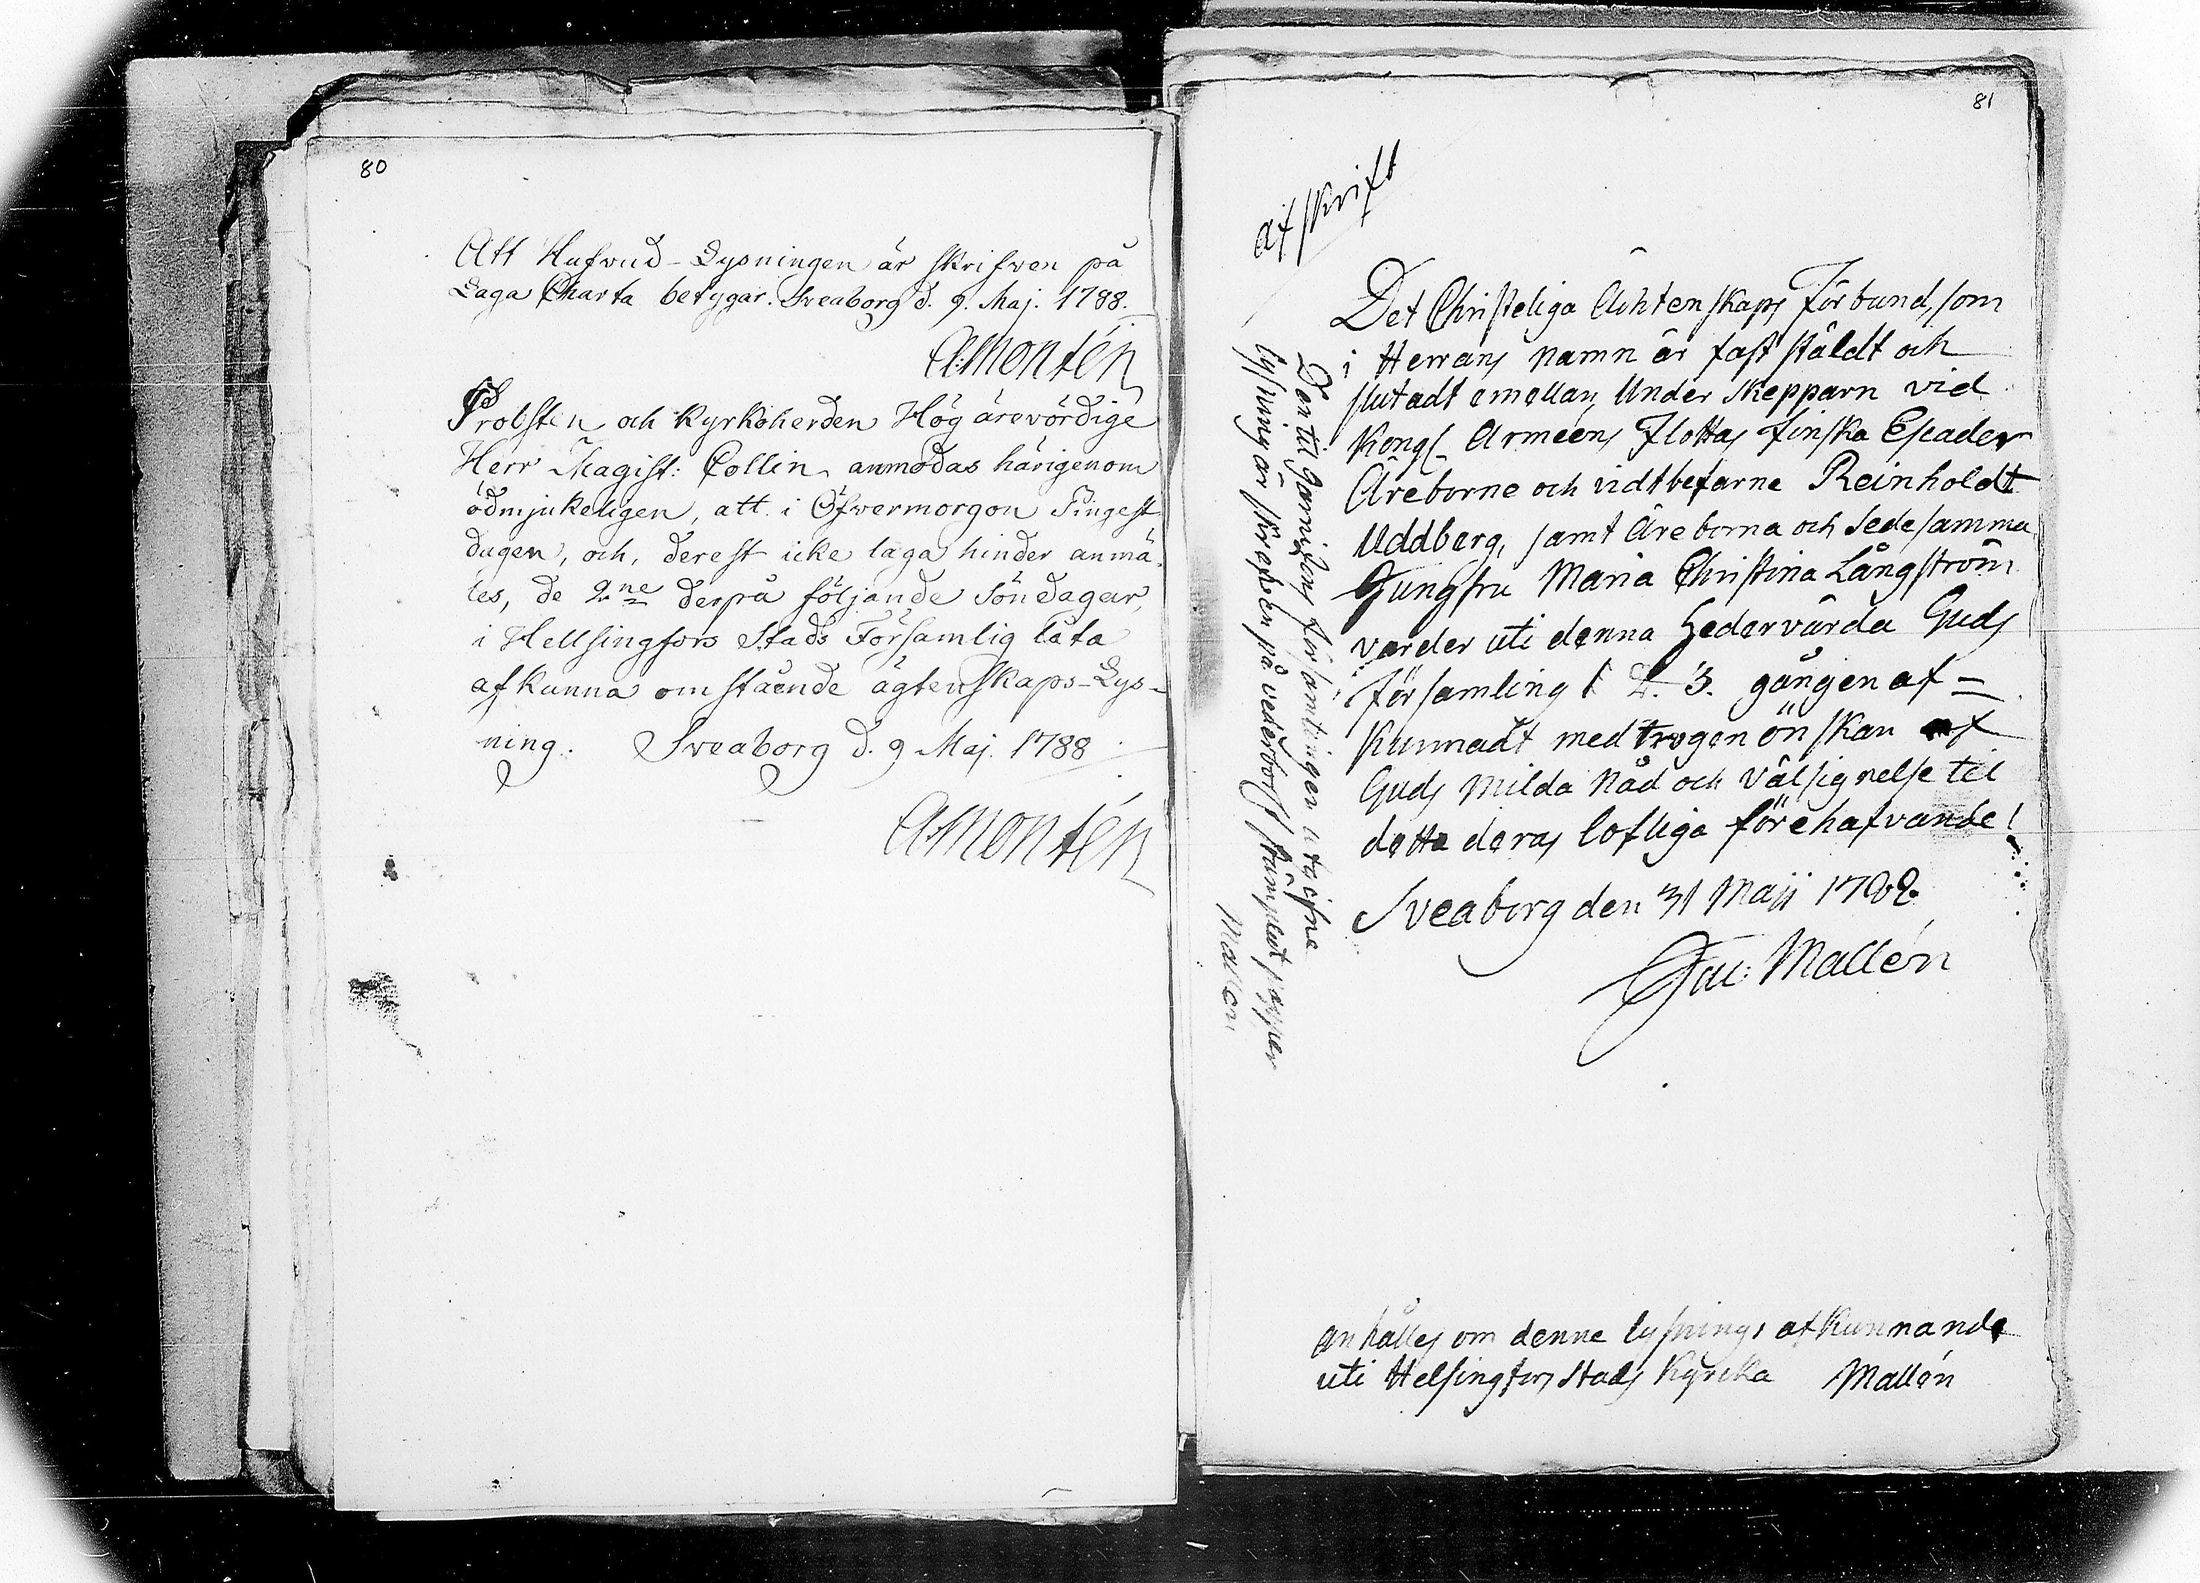 80
Att Hufvud-Lysningen är skrifwen på
Laga Charta betygar. Sveaborg d. 9. Maj. 1788.
A:Montén
Probsten och Kyrkoherden Högärevördige
Herr Magist: Collin anmodas härigenom
ödmjukeligen, att i Öfwermorgon Pingest
dagen, och, derest icke laga hinder anmä
les, de 2ne derpå följande Söndagar,
i Hellsingfors Stads Församlig låta
afkunna omstående ägtenskaps-Lys-
ning. Sveaborg d. 9 Maj. 1788
A:Montén
81
Afskrift
Det Christeliga Ächtenskaps Förbund, som
i Herrans namn är fast stäldt och
slutadt emellan Under Skepparn vid
Kongl. Arméens Flottas finska Escader
Äreborne och vidtbefarne Reinholdt
Uddberg, samt Äreborna och Sedesamma
Jungfru Maria Christina Långström
varder uti denna hedervärda Guds
församling 1 2. 3. gången af=
kunnadt med trogen önskan af
Guds milda Nåd och Välsignelse til
detta deras lofliga förehafvande!
Sveaborg den 31 Maji 1788.
Jac: Mallén
Den til Garnisons församlingen utgifne
lysning är skrefven på vederbörl stämplat papper
Mallén
anhålles om denne lysnings afkunnande
uti Helsingfors Stads Kyrcka Mallén